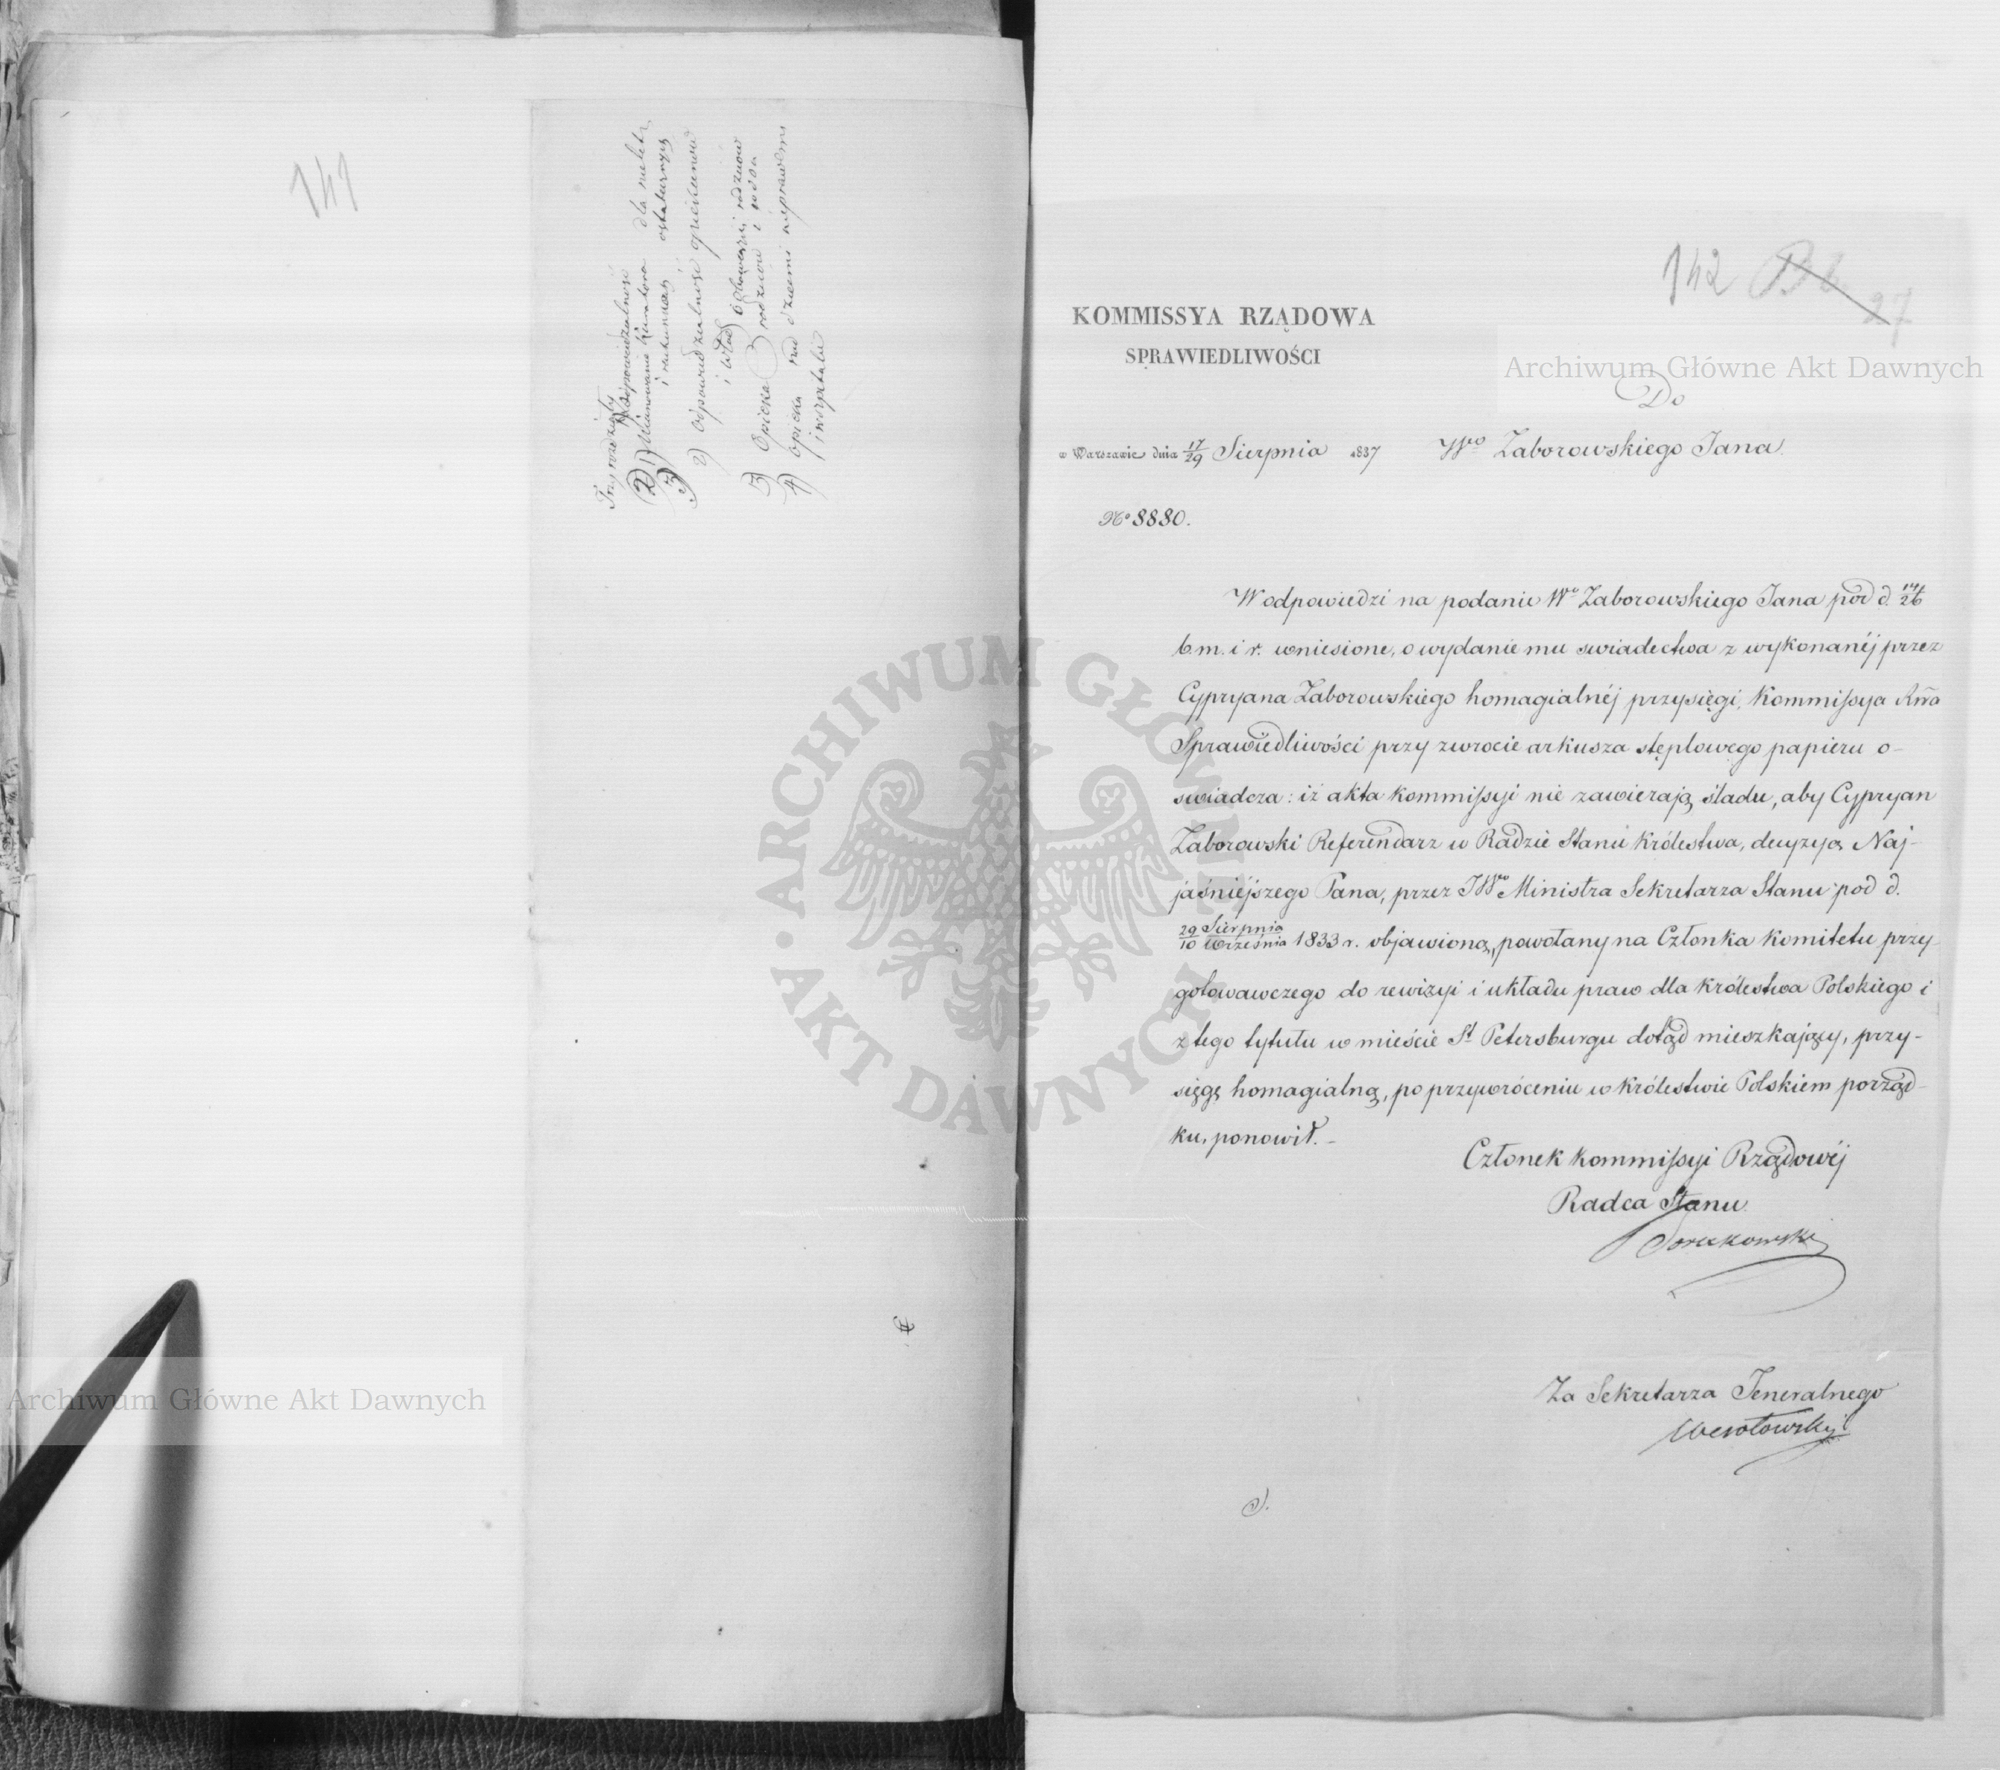 141
Trzy rozdziały
odpowiedzialność
2) 1) Mianowanie kuratora dla nielet:
3) i rachunucą
2) odpowiedzialność opiekunów
i wład
3) Opieka rodziców i wdow
4) opieka nad dziemi
i w szpitalu
142 Bb
27
KOMMISSYA RZĄDOWA
SPRAWIEDLIWOŚCI
Archiwum Główne Akt Dawnych
Do
w Warszawie dnia 17/29 Sierpnia 1837
Wgo Zaborowskiego Jana.
No 8880.
W odpowiedzi na podanie Wo Zaborowskiego Jana pod d. 14/26
b. m. i r. wniesione, o wydanie mu swiadectwa z wykonanéj przez
Cypryana Zaborowskiego homagialnéj przysięgi, Kommissya Rwa
Sprawiedliwości przy zwrocie arkusza stęplowego papieru o-
swiadcza: iż akta Kommissyi nie zawierają śladu, aby Cypryan
Zaborowski Referendarz w Radzie Stanu Królestwa, decyzyą Naj-
jaśniejszego Pana, przez JWo Ministra Sekretarza Stanu pod d.
29 Sierpnia/10 Września 1833 r. objawioną, powołany na Członka Komitetu przy-
gotowawczego do rewizyi i układu praw dla Królestwa Polskiego i
z tego tytułu w mieście St Petersburgu dotąd mieszkający, przy-
sięgę homagialną, po przywróceniu w Królestwie Polskiem porząd-
ku, ponowił. -
Członek Kommissyi Rządowéj
Radca Stanu
Za Sekretarza Jeneralnego
Wesołowski
ARCHIWUM GŁÓWNE • AKT DAWNYCH •
Archiwum Główne Akt Dawnych